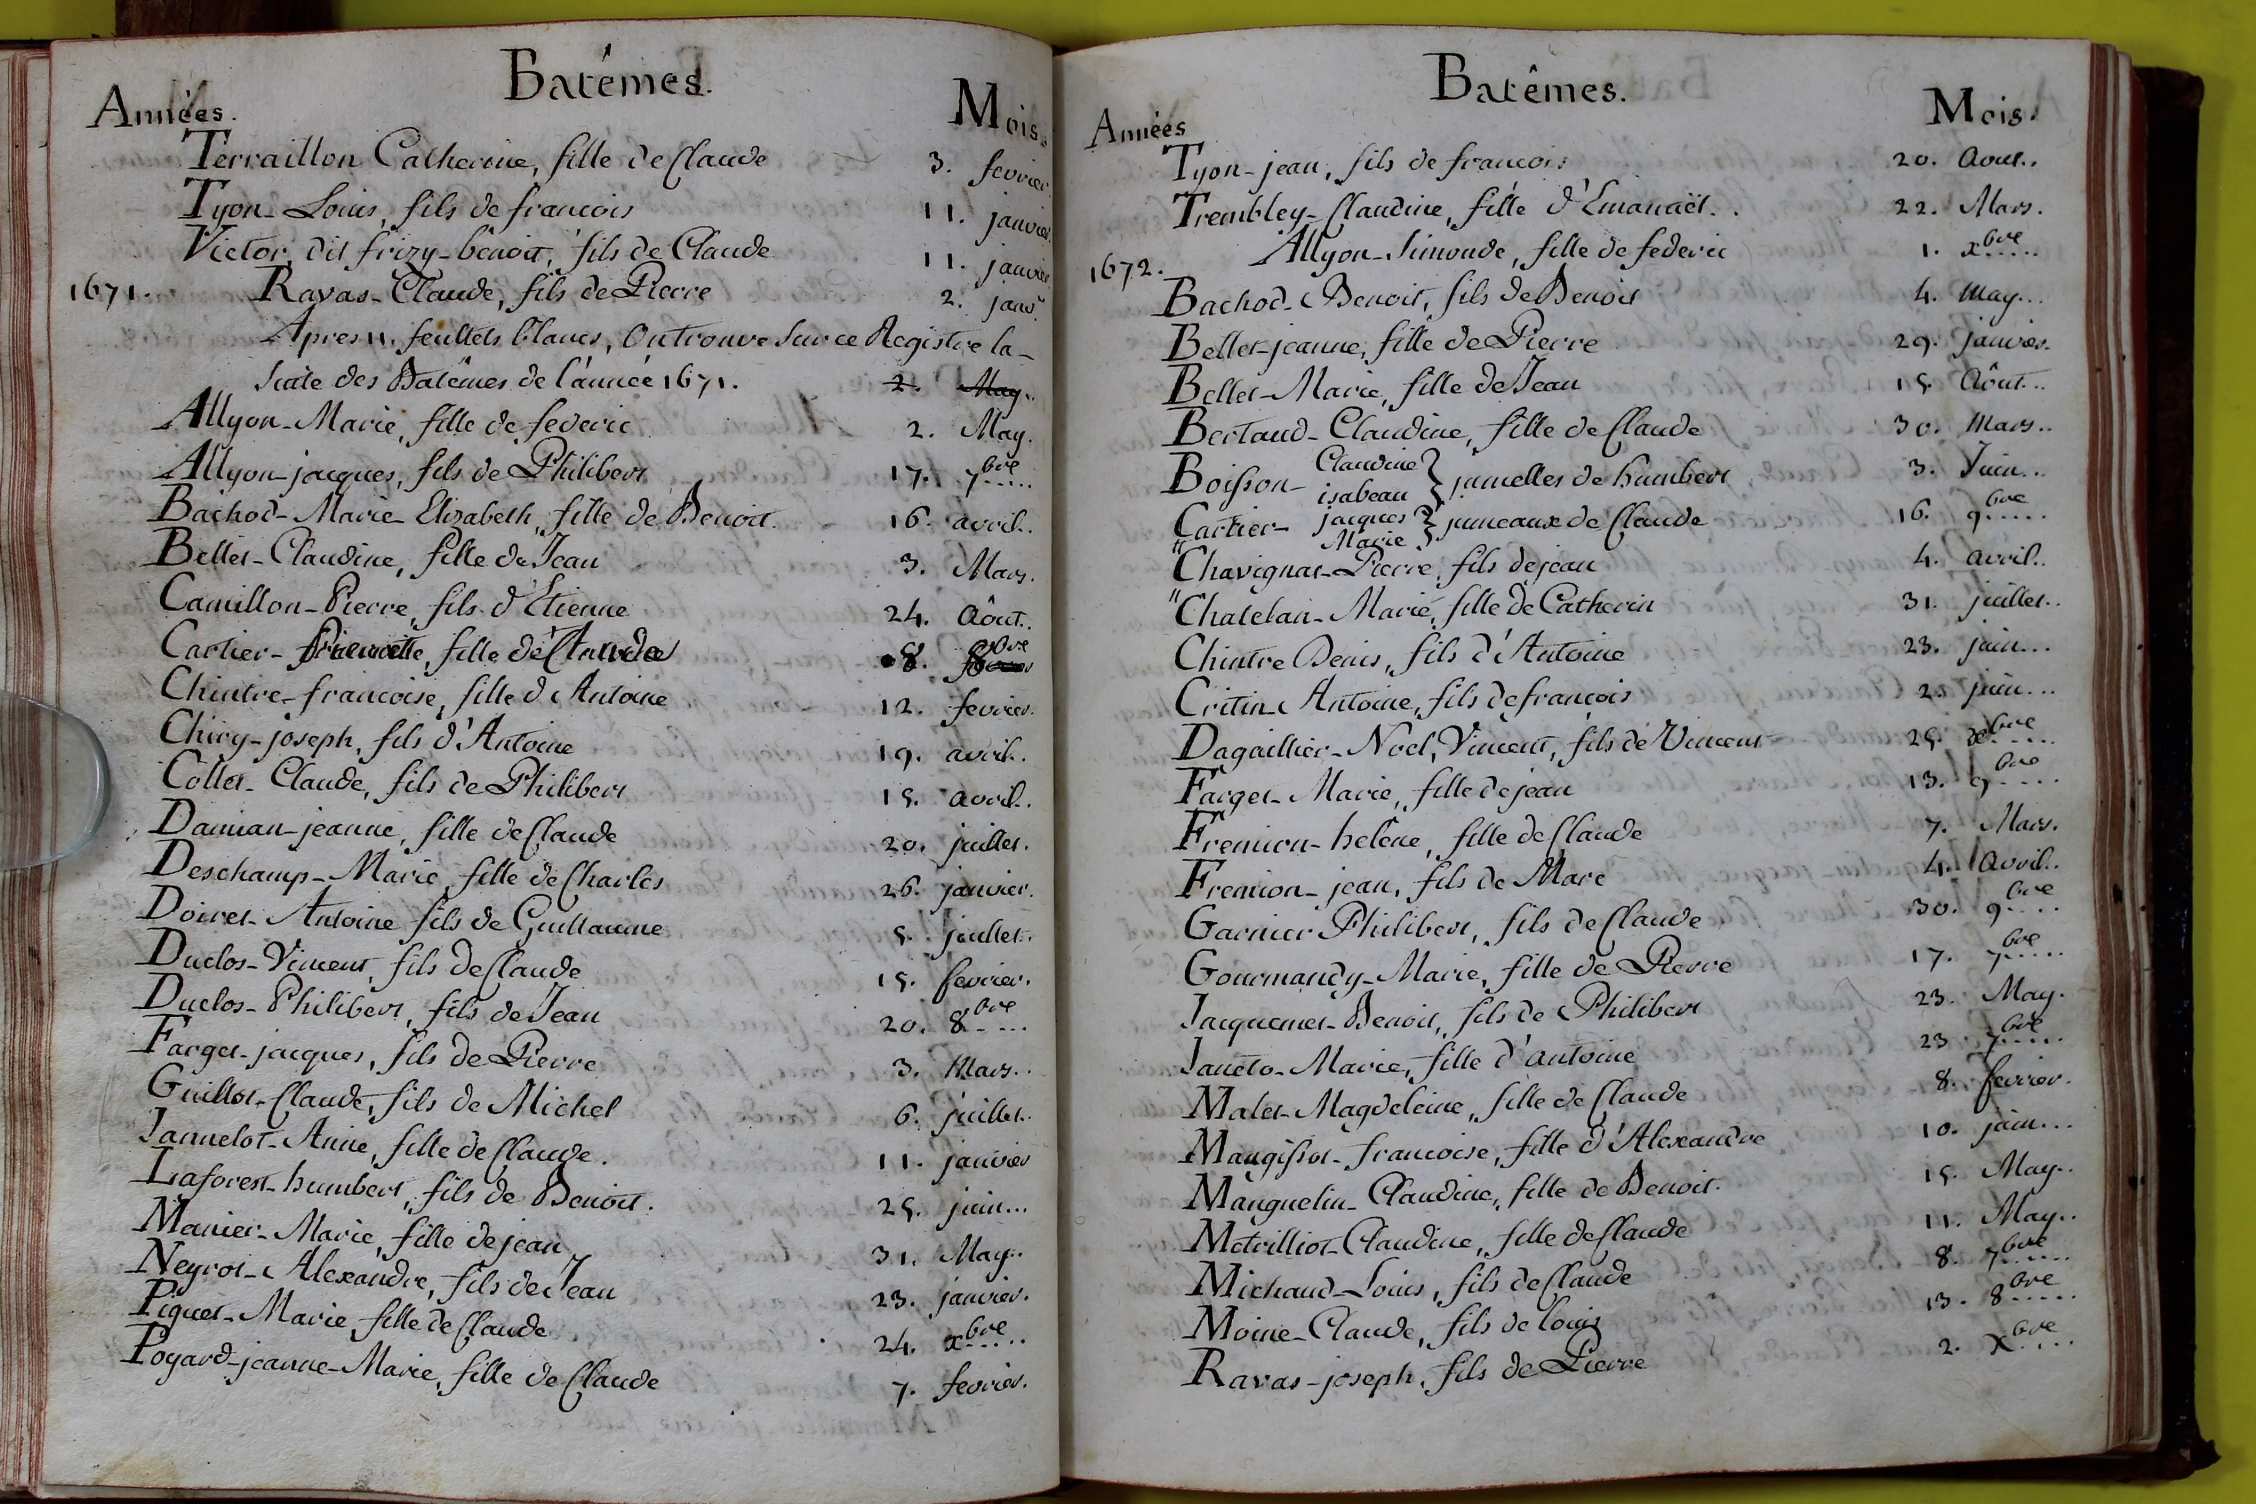 Batêmes.
Années. Mois.
Terraillon Catherine, fille de Claude 3. fevrier.
Tyon-Louis, fils de francois 11. janvier.
Victor dit frizy-benoit, fils de Claude 11. janvier
1671. Ravas-Claude, fils de Pierre 2. janv.r
Apres 11. feuillets blancs, On trouve Sur ce Registre la-
Suite des Batêmes de l'année 1671. 2. May..
Allyon-Marie, fille de federic 2. May.
Allyon-jacques, fils de Philibert 17. 7bre
Bachod-Marie-Elizabeth, fille de Benoit 16. avril..
Bellet-Claudine, fille de Jean 3. Mars.
Camillon-Pierre, fils d'Etienne 24. Aôut..
Cartier- fille de Claude 8. 8bre
Chintre-francoise, fille d'Antoine 12. fevrier.
Chiry-joseph, fils d'Antoine 19. avril..
Collet-Claude, fils de Philibert 15. avril..
Damian-jeanne, fille de Claude 20. juillet.
Deschamp-Marie, fille de Charles 26. janvier.
Doiret-Antoine fils de Guillaume 5. juillet..
Duclos-Vincent, fils de Claude 15. fevrier.
Duclos-Philibert, fils de Jean 20. 8bre
Farget-jacques, fils de Pierre 3. Mars..
Guillot-Claude, fils de Michel 6. juillet..
Jannelot-Anne, fille de Claude. 11. janvier
Laforest-humbert, fils de Benoit. 25. juin...
Manier-Marie, fille de jean 31. May..
Neyrot-Alexandre, fils de Jean 23. janvier.
Piquet-Marie fille de Claude 24. xbre
Poyard-jeanne-Marie, fille de Claude 7. fevrier.
Batêmes.
Années Mois.
Tyon-jean, fils de francois 20. Aout..
Trembley-Claudine, fille d'Emanaël. 22. Mars.
1672. Allyon-Simonde, fille de federic 1. xbre
Bachod-Benoit, fils de Benoit 4. May...
Bellet-jeanne, fille de Pierre 29. janvier.
Bellet-Marie, fille de Jean 15. Aôut...
Bertaud-Claudine, fille de Claude 30. Mars..
Boisson- Claudine isabeau } jumelles de humbert 3. Juin...
Cartier- jacques Marie } jumeaux de Claude 16. 9bre
"Chavignat-Pierre, fils de jean 4. avril..
"Chatelan-Marie, fille de Catherin 31. juillet..
Chintre Denis, fils d'Antoine 23. juin...
Critin-Antoine, fils de francois 2. juin...
Dagaillier-Noel, Vincent, fils de Vincent 25. xbre
Farget-Marie, fille de jean 13. 9bre
Fremion-helêne, fille de Claude 7. Mars.
Fremion-jean, fils de Marc 4. Avril..
Garnier Philibert, fils de Claude 30. 9bre
Gourmandy-Marie, fille de Pierre 17. 7bre
Jacquemet-Benoit, fils de Philibert 23. May.
Janeto-Marie, fille d'antoine 23 7bre
Malet-Magdeleine, fille de Claude 8. fevrier.
Maugissot-francoise, fille d'Alexandre 10. juin...
Manguelin-Claudine, fille de Benoit. 15. May..
Motvilliot-Claudine, fille de Claude 11. May..
Michaud-Louis, fils de Claude 8. 7bre
Moine-Claude, fils de louis 13. 8bre
Ravas-joseph, fils de Pierre 2. Xbre